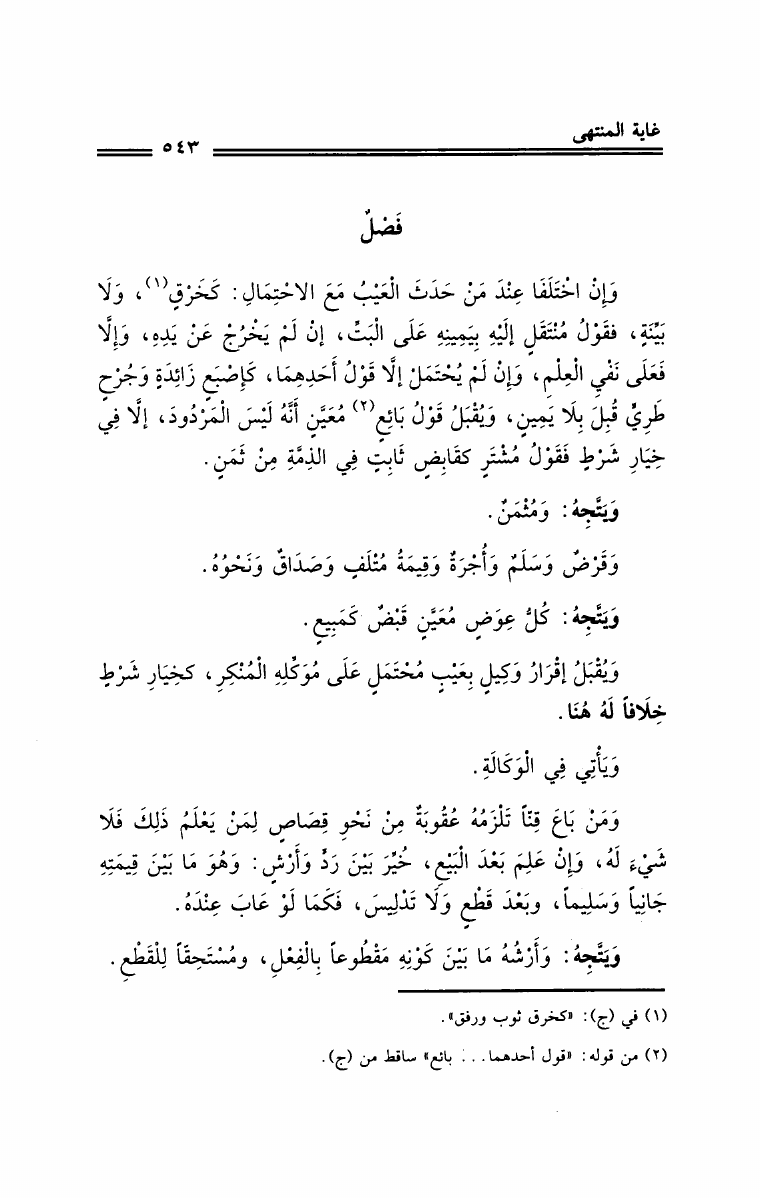 غاية المنتهى
٥٤٣
فَصْلٌ
وَإِنْ اخْتَلَفَا عِنْدَ مَنْ حَدَثَ الْعَيْبُ مَعَ الاحْتِمَالِ: كَخَرْقٍ(١)، وَلَا
بَيِّنَةٍ، فقَوْلُ مُنْتَقَلٍ إلَيْهِ بِيَمِينِهِ عَلَى الْبَتِّ، إنْ لَمْ يَخْرُجْ عَنْ يَدِهِ، وَإِلَّا
فَعَلَى نَفْيِ الْعِلْمِ، وَإِنْ لَمْ يُحْتَمَلْ إلَّا قَوْلُ أَحَدِهِمَا، كَإِصْبَعٍ زَائِدَةٍ وَجُرْحٍ
طَرِيٍّ قُبِلَ بِلَا يَمِينٍ، وَيُقْبَلُ قَوْلُ بَائِعٍ(٢) مُعَيَّنٍ أَنَّهُ لَيْسَ الْمَرْدُودَ، إلَّا فِي
خِيَارِ شَرْطٍ فَقَوْلُ مُشْتَرٍ كقَابِضٍ ثَابِتٍ فِي الذِمَّةِ مِنْ ثَمَنٍ.
وَيَتَّجِهُ: وَمُثْمَنٌ.
وَقَرْضٌ وَسَلَمٌ وَأُجْرَةٌ وَقِيمَةُ مُتْلَفٍ وَصَدَاقٌ وَنَحْوُهُ.
وَيَتَّجِهُ: كُلُّ عِوَضٍ مُعَيَّنٍ قَبْضٌ كَمَبِيعٍ.
وَيُقْبَلُ إقْرَارُ وَكِيلٍ بِعَيْبٍ مُحْتَمَلٍ عَلَى مُوَكِّلِهِ الْمُنْكِرِ، كخِيَارِ شَرْطٍ
خِلَافاً لَهُ هُنَا.
وَيَأْتِي فِي الْوَكَالَةِ.
وَمَنْ بَاعَ قِنّاً تَلْزَمُهُ عُقُوبَةٌ مِنْ نَحْوِ قِصَاصٍ لِمَنْ يَعْلَمُ ذَلِكَ فَلَا
شَيْءَ لَهُ، وَإِنْ عَلِمَ بَعْدَ الْبَيْعِ، خُيِّرَ بَيْنَ رَدٍّ وَأَرْشٍ: وَهُوَ مَا بَيْنَ قِيمَتِهِ
جَانِياً وَسَلِيماً، وبَعْدَ قَطْعٍ وَلَا تَدْلِيسَ، فَكَمَا لَوْ عَابَ عِنْدَهُ.
وَيَتَّجِهُ: وَأَرْشُهُ مَا بَيْنَ كَوْنِهِ مَقْطُوعاً بِالْفِعْلِ، ومُسْتَحِقّاً لِلْقَطْعِ.
(١) في (ج): «كخرق ثوب ورفق».
(٢) من قوله: «قول أحدهما... بائع» ساقط من (ج).